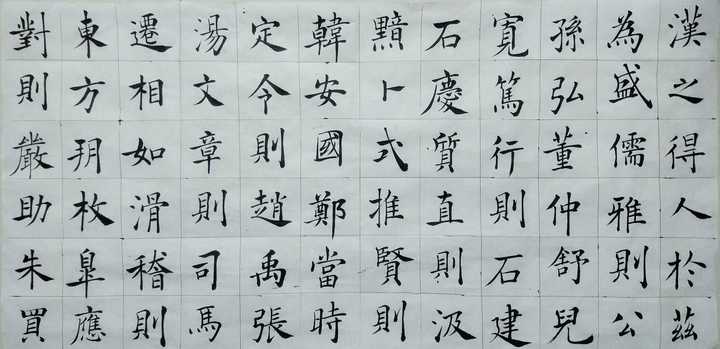 漢之得人於茲
為盛儒雅則公
孫弘董仲舒兒
寬篤行則石建
石慶質直則汲
黯卜式推賢則
韓安國鄭當時
定令則趙禹張
湯文章則司馬
遷相如滑稽則
東方玥枚臯應
對則嚴助朱買